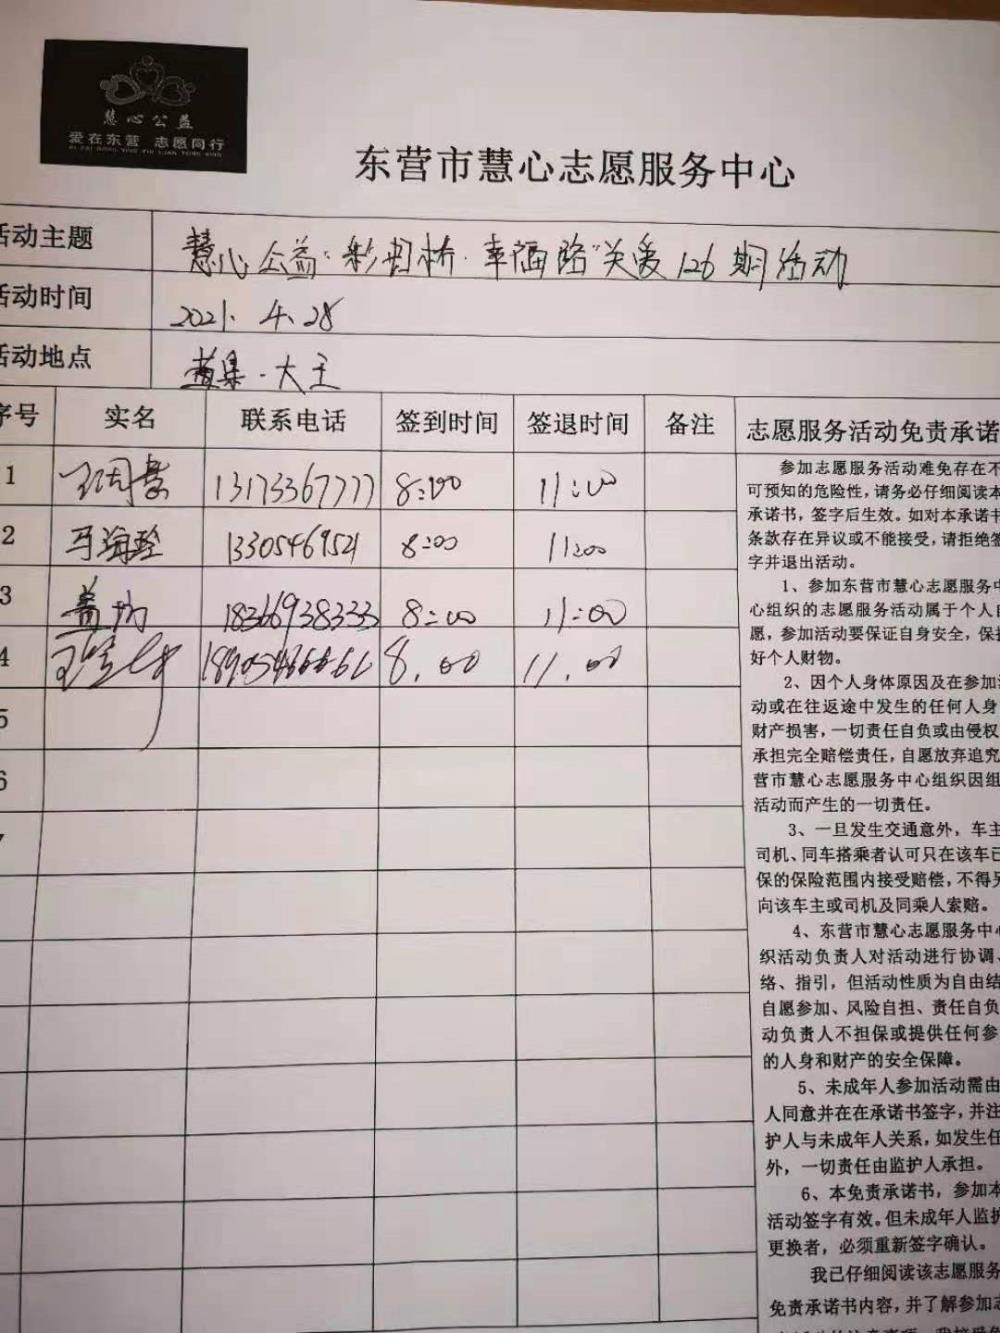 慧心公益
爱在东营 志愿同行
AI ZAI DONG YING ZHI YUAN TONG XING
东营市慧心志愿服务中心
活动主题 慧心公益"彩虹桥·幸福路"关爱126期活动
活动时间 2021. 4. 28
活动地点 大王
序号 实名 联系电话 签到时间 签退时间 备注
1 13173367777 8:00 11:00
2 马海玲 13305469521 8:00 11:00
3 18366938333 8:00 11:00
4 8.00 11.00
5
6
7
志愿服务活动免责承诺
参加志愿服务活动难免存在不
可预知的危险性，请务必仔细阅读本
承诺书，签字后生效。如对本承诺书
条款存在异议或不能接受，请拒绝签
字并退出活动。
1、参加东营市慧心志愿服务中
心组织的志愿服务活动属于个人自
愿，参加活动要保证自身安全，保护
好个人财物。
2、因个人身体原因及在参加活
动或在往返途中发生的任何人身
财产损害，一切责任自负或由侵权
承担完全赔偿责任，自愿放弃追究
营市慧心志愿服务中心组织因组
活动而产生的一切责任。
3、一旦发生交通意外，车主
司机、同车搭乘者认可只在该车已
保的保险范围内接受赔偿，不得另
向该车主或司机及同乘人索赔。
4、东营市慧心志愿服务中心
织活动负责人对活动进行协调、
络、指引，但活动性质为自由结
自愿参加、风险自担、责任自负
动负责人不担保或提供任何参
的人身和财产的安全保障。
5、未成年人参加活动需由
人同意并在在承诺书签字，并注
护人与未成年人关系，如发生任
外，一切责任由监护人承担。
6、本免责承诺书，参加本
活动签字有效。但未成年人监护
更换者，必须重新签字确认。
我已仔细阅读该志愿服务
免责承诺书内容，并了解参加志